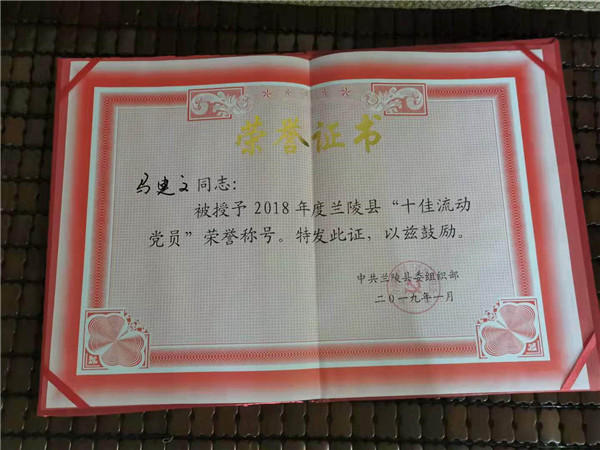 荣誉证书
马建文同志：
被授予2018年度兰陵县“十佳流动
党员”荣誉称号。特发此证，以兹鼓励。
中共兰陵县委组织部
二〇一九年一月